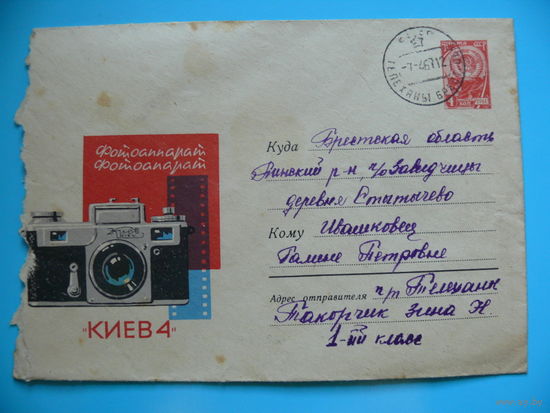 Фотоаппарат
Фотоапарат
"КИЕВ 4"
Куда Брестская область
Пинский р-н, п/о Заведчицы
деревня Стытычево
Кому Ивашковец
Галине Петровне
Адрес отправителя п/о Телеханы
Такорчик Зина Н.
1-ый класс